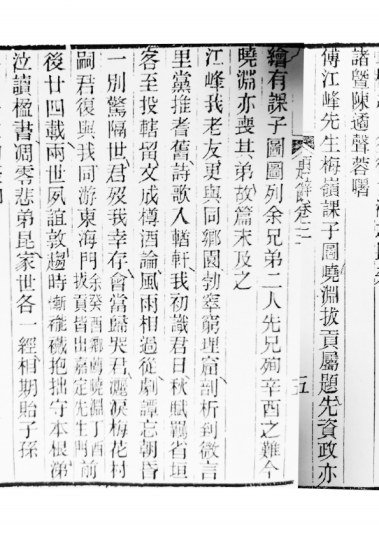 諸暨陳遹聲蓉曙
傅江峰先生梅嶺課子圖曉淵拔貢屬題先資政亦
五
繪有課子圖圖列余兄弟二人先兄殉辛酉之難今
曉淵亦喪其弟故篇末及之
江峰我老友更與同鄉閭勃窣窮理窟剖析到微言
里黨推耆舊詩歌入輶軒我初識君日秋賦羈省垣
客至投轄留文成樽酒論風雨相過從劇譚忘朝昏
一別驚隔世君歿我幸存會當歸哭君灑淚梅花村
嗣君復與我同游東海門余癸酉鄉薦曉淵丁酉拔貢皆出嘉定先生門前
後廿四載兩世夙誼敦趨時慚褦襶抱拙守本根涕
泣讀楹書凋零悲弟昆家世各一經相期貽子孫